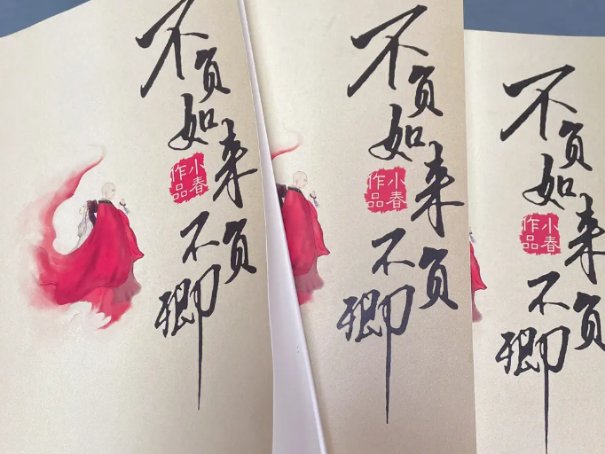 不负如来
不负卿
小春
作品
不负如来
不负卿
小春
作品
不负如来
不负卿
小春
作品